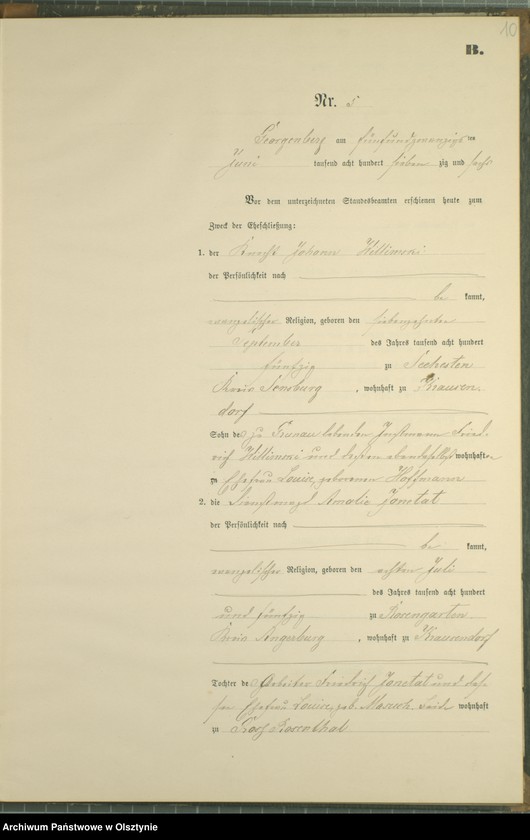 10
B.
Nr. 5
Georgenberg am fünfundzwanzigs ten
Juni tausend acht hundert sieben zig und sechs
Vor dem unterzeichneten Standesbeamten erschienen heute zum
Zweck der Eheschließung:
1. der Knecht Johann
der Persönlichkeit nach
be kannt,
evangelischer Religion, geboren den siebenzehnten
September des Jahres tausend acht hundert
fünfzig zu Seehesten
Kreis Sensburg, wohnhaft zu Krausen-
dorf
Sohn des zu Grunau lebenden Instmann Fried-
rich und dessen daselbst wohnhaften
zu Ehefrau Louise, geborenen Hoffmann
2. die Dienstmagd Amalie Jonetat
der Persönlichkeit nach
be kannt,
evangelischer Religion, geboren den achten Juli
des Jahres tausend acht hundert
und fünfzig zu Rosengarten
Kreis Angerburg, wohnhaft zu Krausendorf
Tochter des Arbeiter Friedrich Jonetat und des-
sen Ehefrau Louise, geb. Masuch, beide wohnhaft
zu Rosenthal
Archiwum Państwowe w Olsztynie